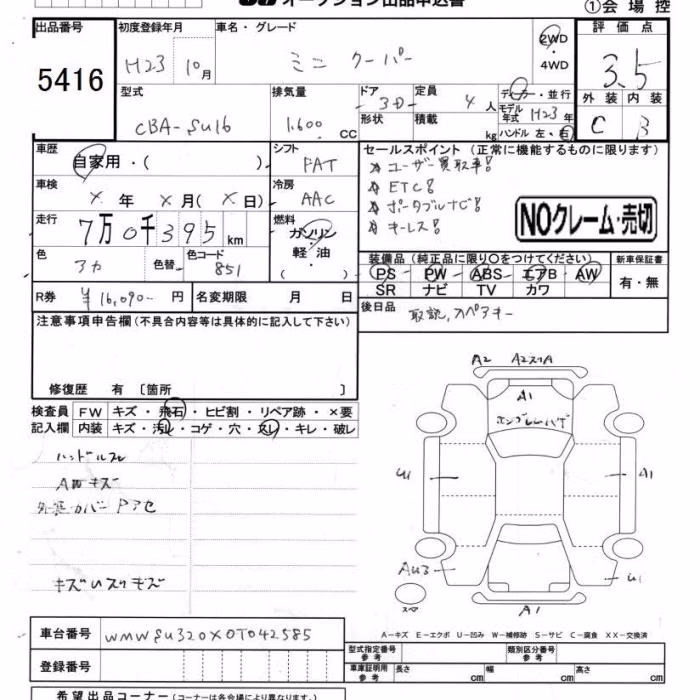 オークション出品申込書
①会場控
出品番号 初度登録年月 車名・グレード 評価点
5416 H23 10月 ミニ クーパー 2WD ・ 4WD 3.5
型式 排気量 ドア 定員 ディーラー・並行 外装 内装
CBA-SU16 1.600 CC 3D 4人 モデル年式 H23年 C B
形状 積載 kg ハンドル 左・右
車歴 自家用・( ) シフト FAT セールスポイント (正常に機能するものに限ります)
車検 ×年 ×月(×日) 冷房 AAC ユーザー買取車!
ETC!
走行 7万0千395km 燃料 ガソリン・軽油・( ) ポータブルナビ!
キーレス!
NOクレーム・売切
色 アカ 色替 色コード 851
装備品 (純正品に限り○をつけてください) 新車保証書
PS PW ABS エアB AW 有・無
SR ナビ TV カワ
R券 ¥16,090- 円 名変期限 月 日
後日品 取説,スペアキー
注意事項申告欄(不具合内容等は具体的に記入して下さい)
修復歴 有 〔箇所 〕
検査員記入欄 FW キズ・飛石・ヒビ割・リペア跡・×要
内装 キズ・汚れ・コゲ・穴・スレ・キレ・破レ
ハンドルスレ
AWキズ
キズUスリキズ
A2 A2スリA
A1
エンブレムハゲ
U1 A1
AU3 U1
スペア A1
A-キズ E-エクボ U-凹み W-補修跡 S-サビ C-腐食 XX-交換済
車台番号 WMWSU320X0T042585
登録番号
型式指定番号 参考 類別区分番号 参考
車庫証明用 参考 長さ cm 幅 cm 高さ cm
希望出品コーナー(コーナーは各会場により異なります)